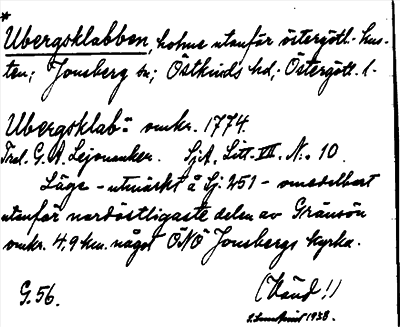 *
Ubergsklabben, holme utanför östergötl.-kus-
ten; Jonsberg sn; Östkinds hd; Östergötl. l.
Ubergsklab: omkr. 1774.
Trol. G. A. Lejonanker. SjA, Litt. VII. N:o 10.
Läge - utmärkt å Sj. 251 - omedelbart
utanför nordöstligaste delen av Gränsön
omkr. 4,9 km. något ÖNÖ Jonsbergs kyrka.
G. 56.
(Vänd!)
1938.